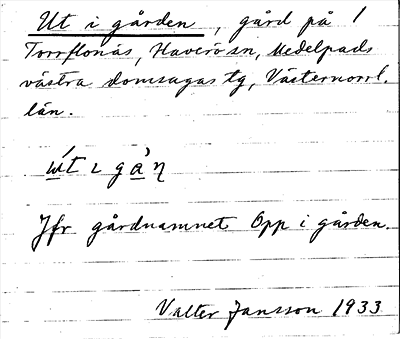 Ut i gården, gård på 1
Torrflonäs, Haverö sn, Medelpads
västra domsagas tg, Västernorrl.
län.
ẃt ɩ gàɳ
Jfr gårdnamnet Opp i gården.
Valter Jansson 1933